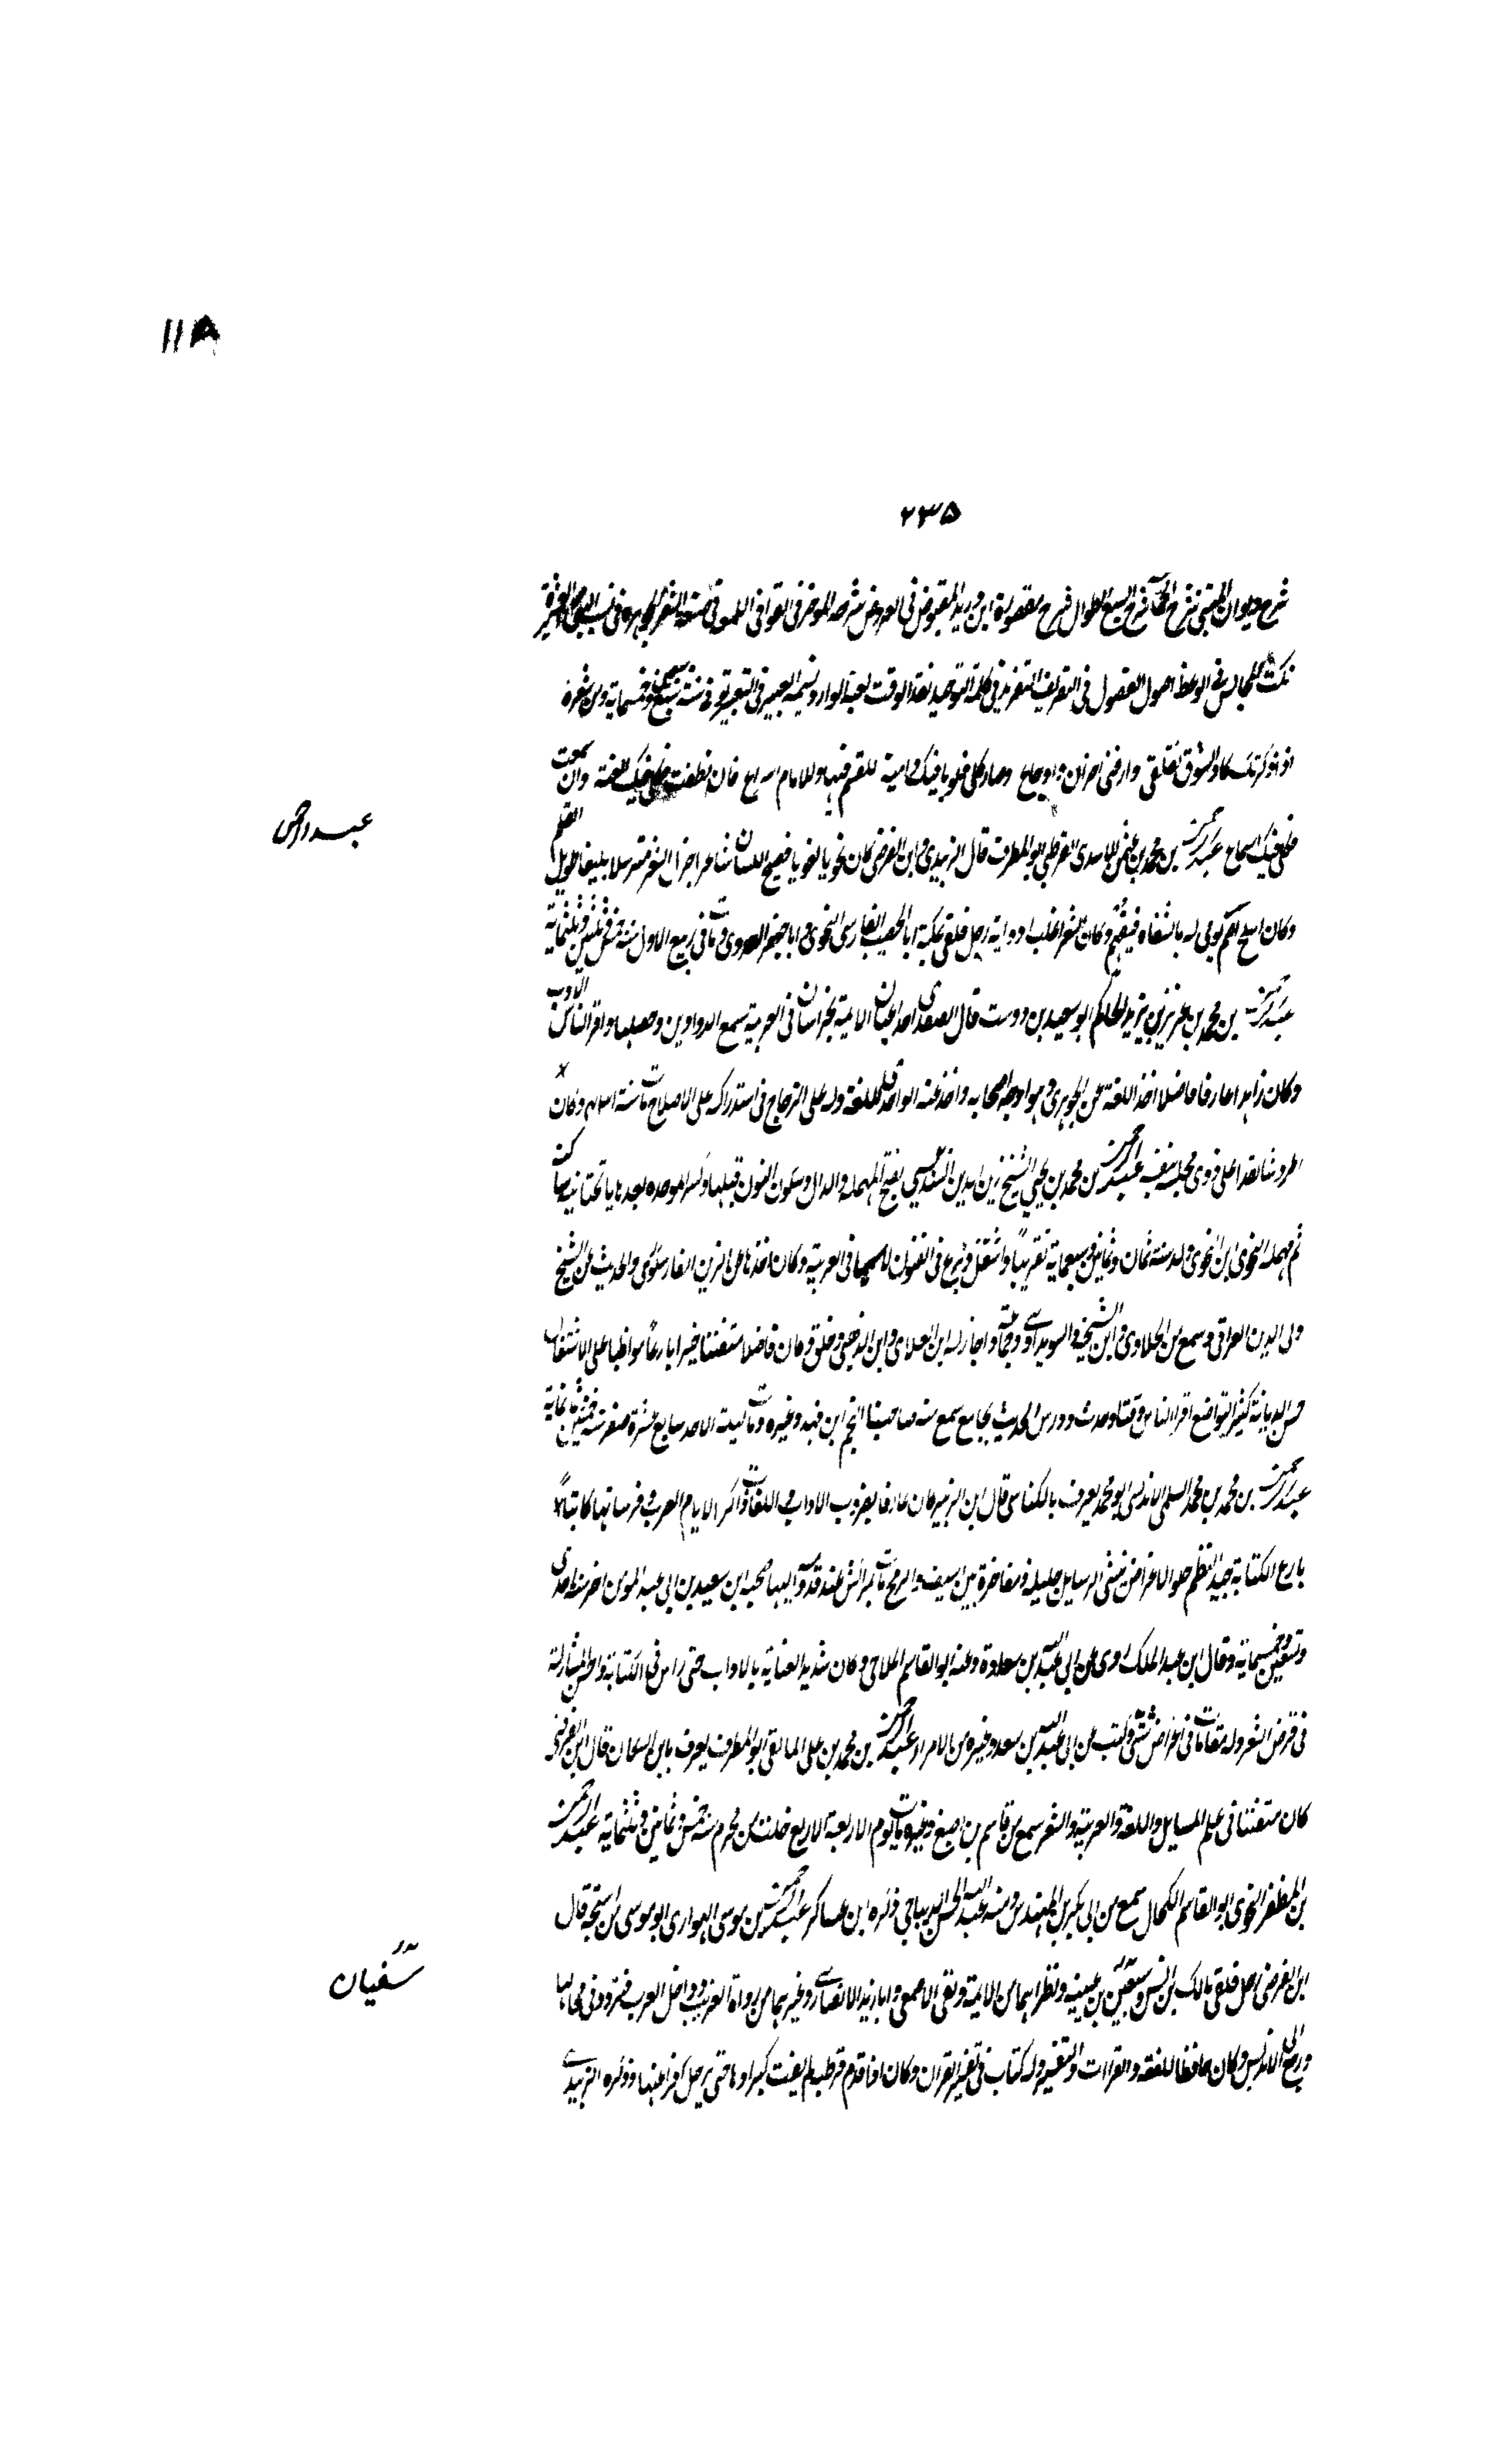 ١١٨
٢٣٥
شرح ديوان المتنبي شرح الحماسة شرح السبع الطوال شرح مقصورة ابن دريد المقبوض في العروض شرحه الموجز في القوافي اللمعة في صنعة الشعر الجوهرة في نسب النبي
نكت المجالس في الوعظ اصول الفصول في التصوف التفريد في كلمة التوحيد نقد الوقت بغية الوارد نسمة العبير في التعبير توفي سنة سبع وسبعين وخمسماية ومن شعره
اذا ذكرتك كاد الشوق يقلقني وارقني احزان واوجاع وصار كلي قلوبا فيك دامية للسقم فيها وللالام اسراع فان نطقت فكلي فيك السنة وان سمعت
فكلي فيك اسماع عبد الرحمن بن محمد بن الاسدي القرطبي ابو المطرف قال الزبيدي وابن الفرضي كان نحويا لغويا فصيح اللسان شاعرا جزل الشعر مترسلا بليغا طويل القلم
وكان اصلخ اصم يومى له بالشفاه فيفهم وكان الشعر اغلب ادواته رحل فلقي بمكة ابا الفارسي النحوي وابا جعفر ومات في ربيع الاول سنة وثلثين وثلثماية
عبد الرحمن بن محمد بن محمد بن عزيز بن يزيد الحاكم ابو سعيد بن دوست قال الصفدي احد اعيان الايمة بخراسان في العربية سمع الدواوين وحصلها واقرا الناس الادب
وكان زاهدا عارفا فاضلا اخذ اللغة عن الجوهري وهو اوجه اصحابه واخذ عنه الواحدي اللغة وله على الزجاجي استدراكه على الاصلاح مات سنة ٤٣١ وكان
اطروشا يقرا على ذوي مجلسه بنفسه عبد الرحمن بن محمد بن يحيى الشيخ زين الدين السندبيسي بفتح المهملة والدال وسكون النون قبلها وكسر الموحدة بعدها ياتحتانية ساكنة
ثم مهملة النحوي ابن النحوي ولد سنة ثمان وثمانين وسبعماية تقريبا واشتغل وبرع في الفنون لاسيما في العربية وكان اخذها عن الزين الفارسكوري والحديث عن الشيخ
ولي الدين العراقي وسمع من الحلاوي وابن الشيخة والسويداوي وجماعة واجاز له ابن العلائي وابن الذهبي وخلق وكان فاضلا متفننا خيرا بارعا مواظبا على الاشتغال
حسن الديانة كثير التواضع اقرا الناس وقتا وحدث ودرس الحديث بجامع سمع منه صاحبنا النجم ابن فهد وغيره ومات ليلة الاحد سابع عشرة صفر سنة وثمانماية
عبد الرحمن بن محمد بن محمد السلمي الاندلسي ابو محمد يعرف بالمكناسي قال ابن الزبير كان عارفا بضروب الاداب واللغات ذاكرا لايام العرب وفرسانها كاتبا
بارع الكتابة جيد النظم حلو الاغراض منشي الرسايل جليلة ومفاخرة بين السيف والرمح مات بمراكش عند قدومه اليها صحبة ابن سعيد بن ابي عبد المومن اخر سنة احدى
وتسعين وخمسماية وقال ابن عبد الملك روى عن ابي عبد الله بن سعادة وعنه ابو القاسم الملاحي وكان شديد العناية بالاداب حتى راس في الكتابة واحسن المشاركة
في قرض الشعر وله مقامات في اغراض شتى وكتب عن ابي عبد الله بن سعد وغيره من الامراء عبد الرحمن بن محمد بن علي المالقي ابو المطرف يعرف بابن السكان قال ابن الفرضي
كان متفننا في علم المسايل واللغة والعربية والشعر سمع من قاسم بن اصبغ وغيره ومات يوم الاربعا لاربع خلت من محرم سنة خمس وثمانين وثلثماية عبد الرحمن
بن المظفر النحوي ابو القاسم الكحال سمع من ابي بكر بن المهندس ومنه عبد الله بن الحسن الديباجي ذكره ابن عساكر عبد الرحمن بن موسى الهواري ابو موسى من استجة قال
ابن الفرضي رحل فلقي مالك بن انس وسفيان بن عيينة ونظراهما من الايمة ولقي الاصمعي وابا زيد الانصاري وغيرهما من رواة الغريب وداخل العرب فتردد في محالها
ورجع الى الاندلس وكان حافظا للفقه والقراات والتفسير وله كتاب في تفسير القران وكان اذا قدم قرطبة لم يفت كبراوها حتى يرحل اقرا عنها وذكره الزبيدي
عبد الرحمن
سفيان